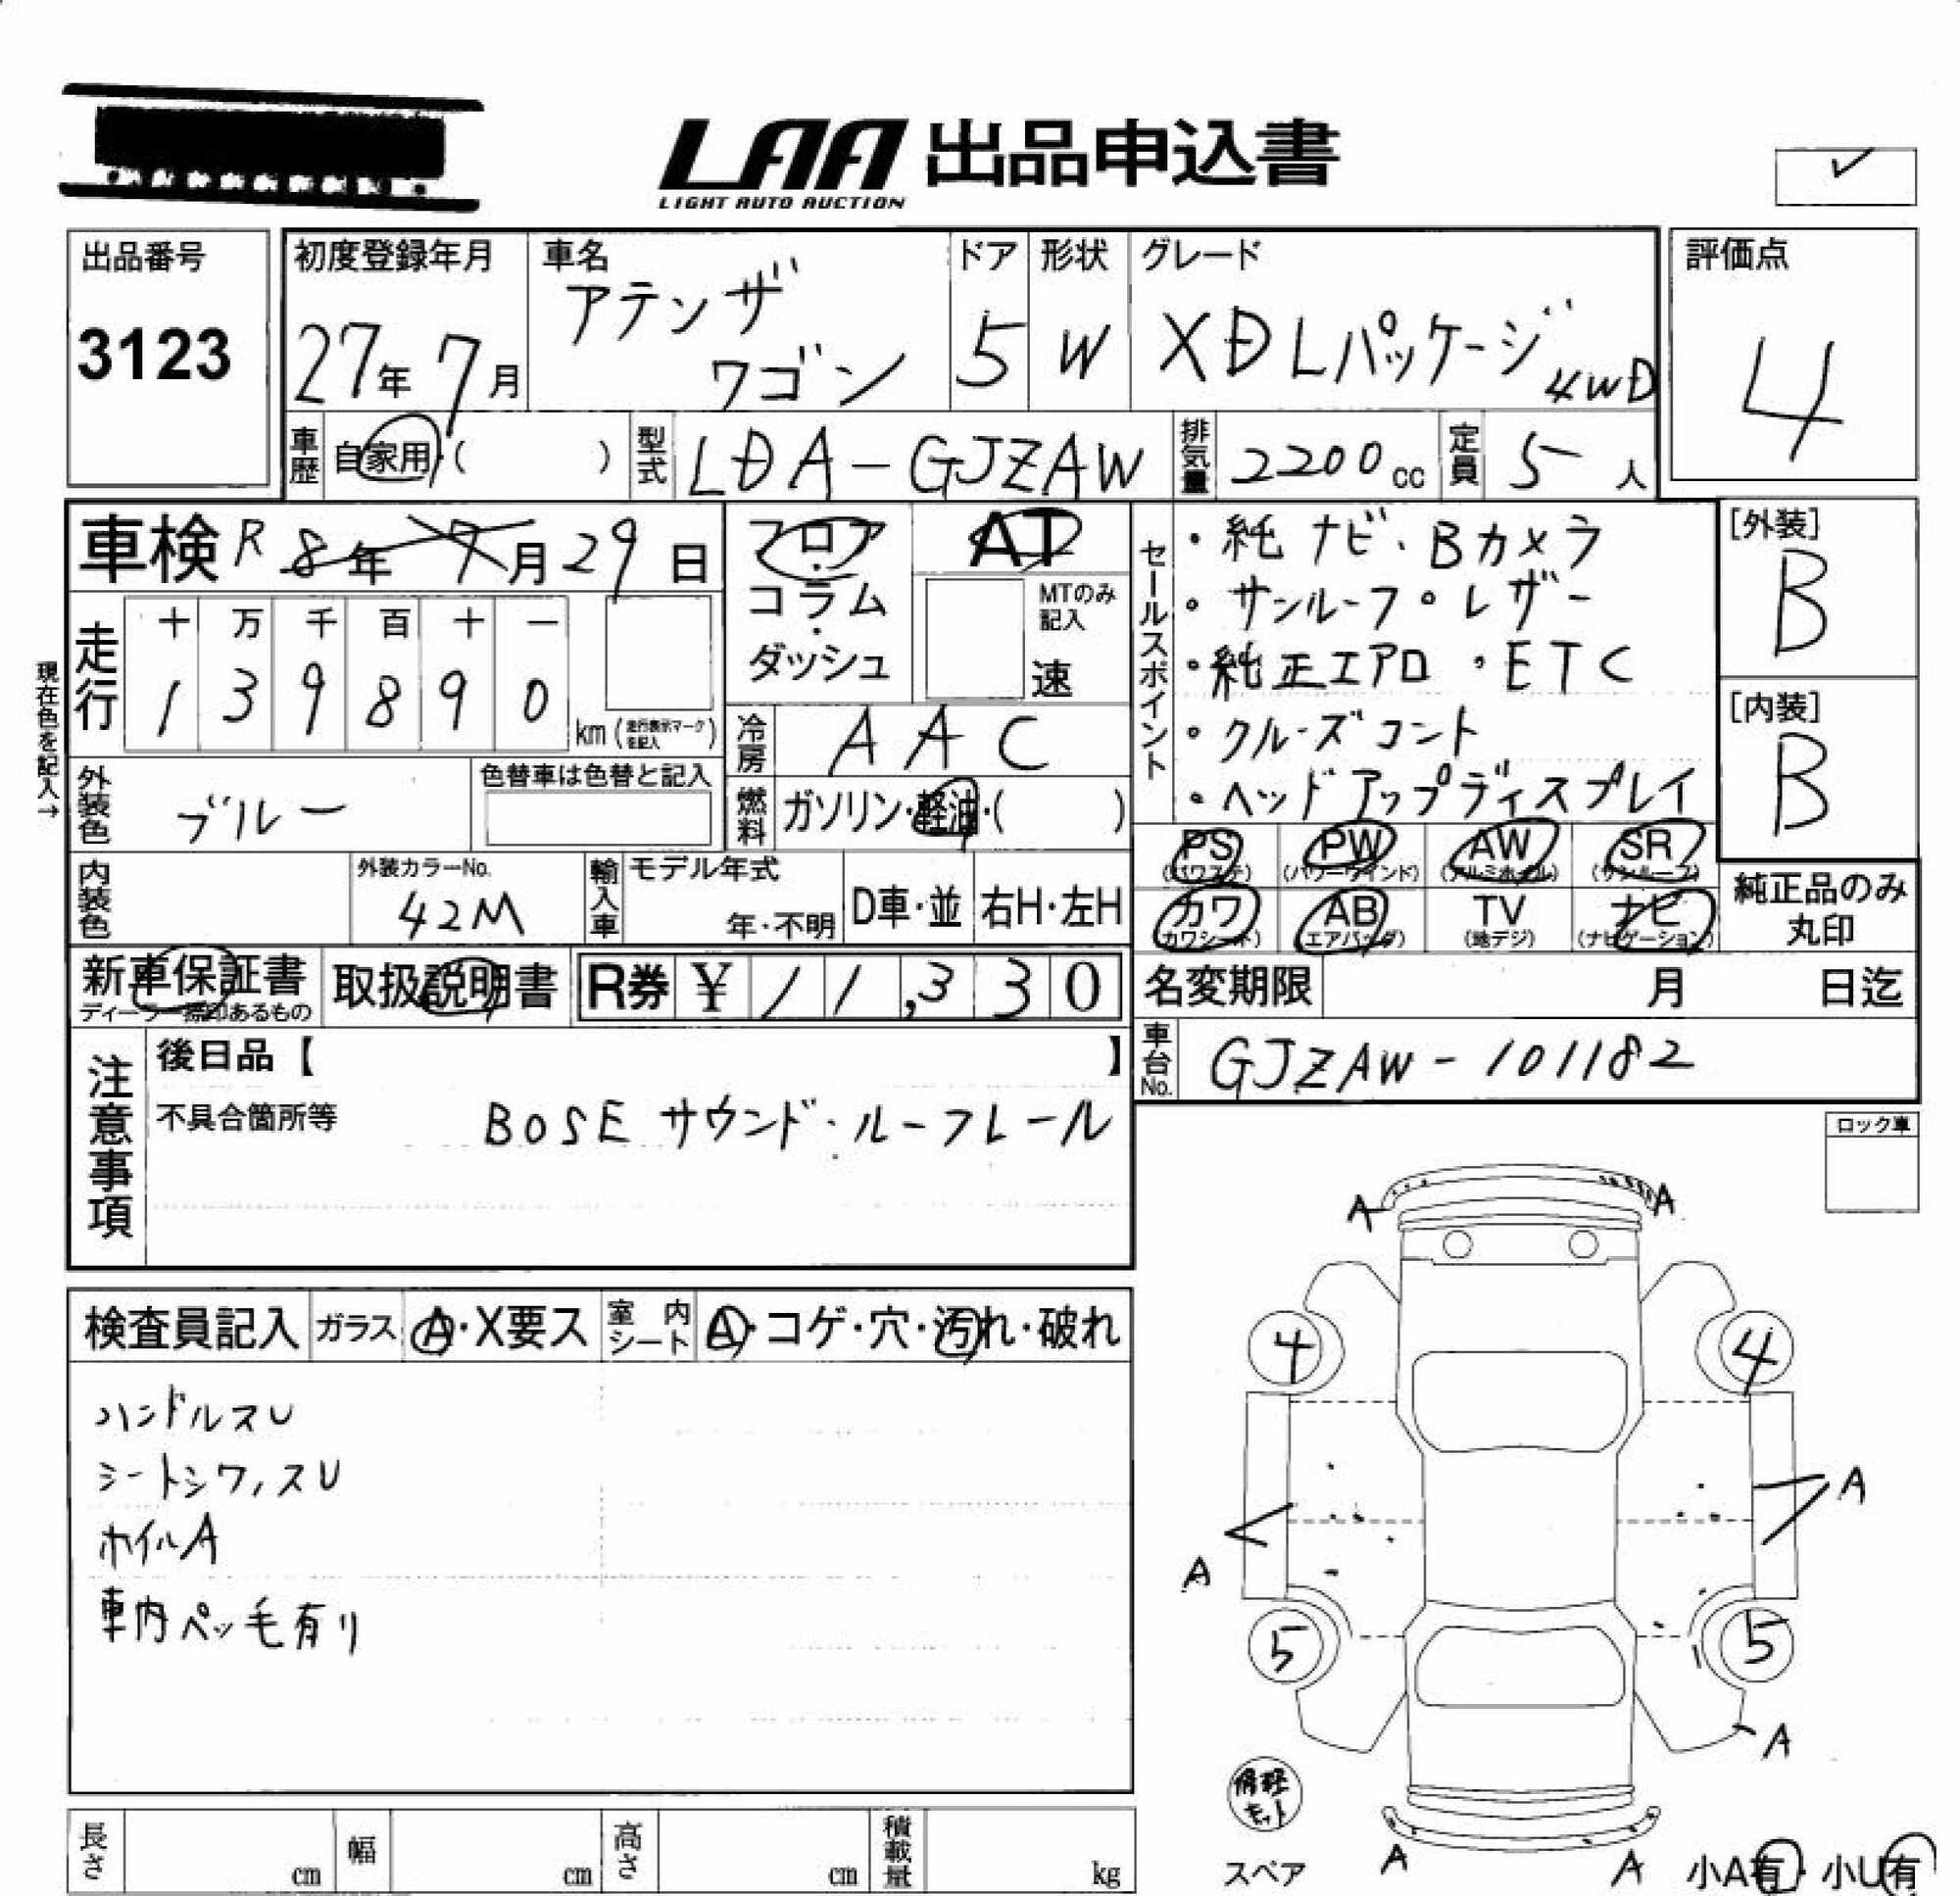 LAA 出品申込書
LIGHT AUTO AUCTION
出品番号
3123
初度登録年月
27年 7月
車名
アテンザ
ワゴン
ドア
5
形状
W
グレード
XD Lパッケージ 4WD
評価点
4
車歴 自家用・( )
型式 LDA-GJ2AW
排気量 2200cc
定員 5人
車検 R 8年 7月 29日
現在色を記入→
走行
十 万 千 百 十 一
1 3 9 8 9 0 km (走行表示マークを記入)
フロア・コラム・ダッシュ
AT
MTのみ記入
速
冷房 AAC
燃料 ガソリン・軽油・( )
セールスポイント
・純ナビ・Bカメラ
・サンルーフ・レザー
・純正エアロ・ETC
・クルーズコント
・ヘッドアップディスプレイ
[外装]
B
[内装]
B
外装色 ブルー
色替車は色替と記入
内装色
外装カラーNo.
42M
輸入車
モデル年式
年・不明
D車・並
右H・左H
PS (パワステ)
PW (パワーウインド)
AW (アルミホイル)
SR (サンルーフ)
カワ (カワシート)
AB (エアバッグ)
TV (地デジ)
ナビ (ナビゲーション)
純正品のみ
丸印
新車保証書
ディーラー捺印あるもの
取扱説明書
R券 ¥ 11,330
名変期限 月 日迄
車台No. GJ2AW-101182
注意事項
後日品【 】
不具合箇所等 BOSEサウンド・ルーフレール
ロック車
検査員記入
ガラス A・X要ス
室内シート A・コゲ・穴・汚れ・破れ
ハンドルスU
シートシワ,スU
ホイルA
車内ペット毛有り
A A
4 4
A
A
5 5
A
修理キット
スペア
A A
小A有・小U有
長さ cm
幅 cm
高さ cm
積載量 kg